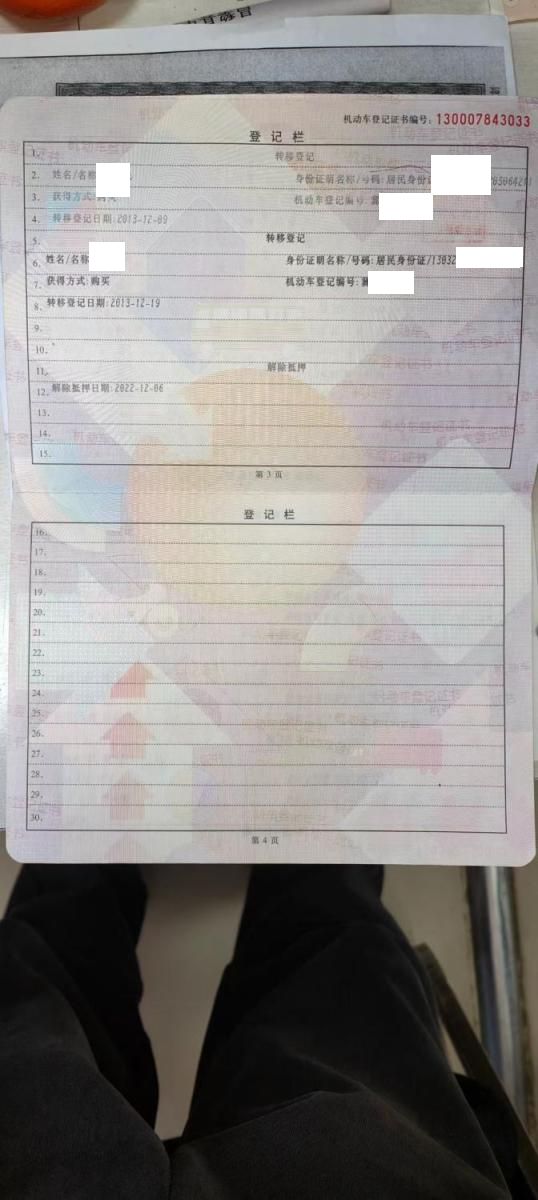 机动车登记证书编号：130007843033
登 记 栏
1． 转移登记
2． 姓名/名称 身份证明名称/号码:居民身份
3． 获得方式:购买 机动车登记编号:冀
4． 转移登记日期:2013-12-09
5． 转移登记
6． 姓名/名称 身份证明名称/号码:居民身份证/13032
7． 获得方式:购买 机动车登记编号:冀
8． 转移登记日期:2013-12-19
9．
10．
11． 解除抵押
12． 解除抵押日期:2022-12-06
13．
14．
15．
第 3 页
登 记 栏
16．
17．
18．
19．
20．
21．
22．
23．
24．
25．
26．
27．
28．
29．
30．
第 4 页